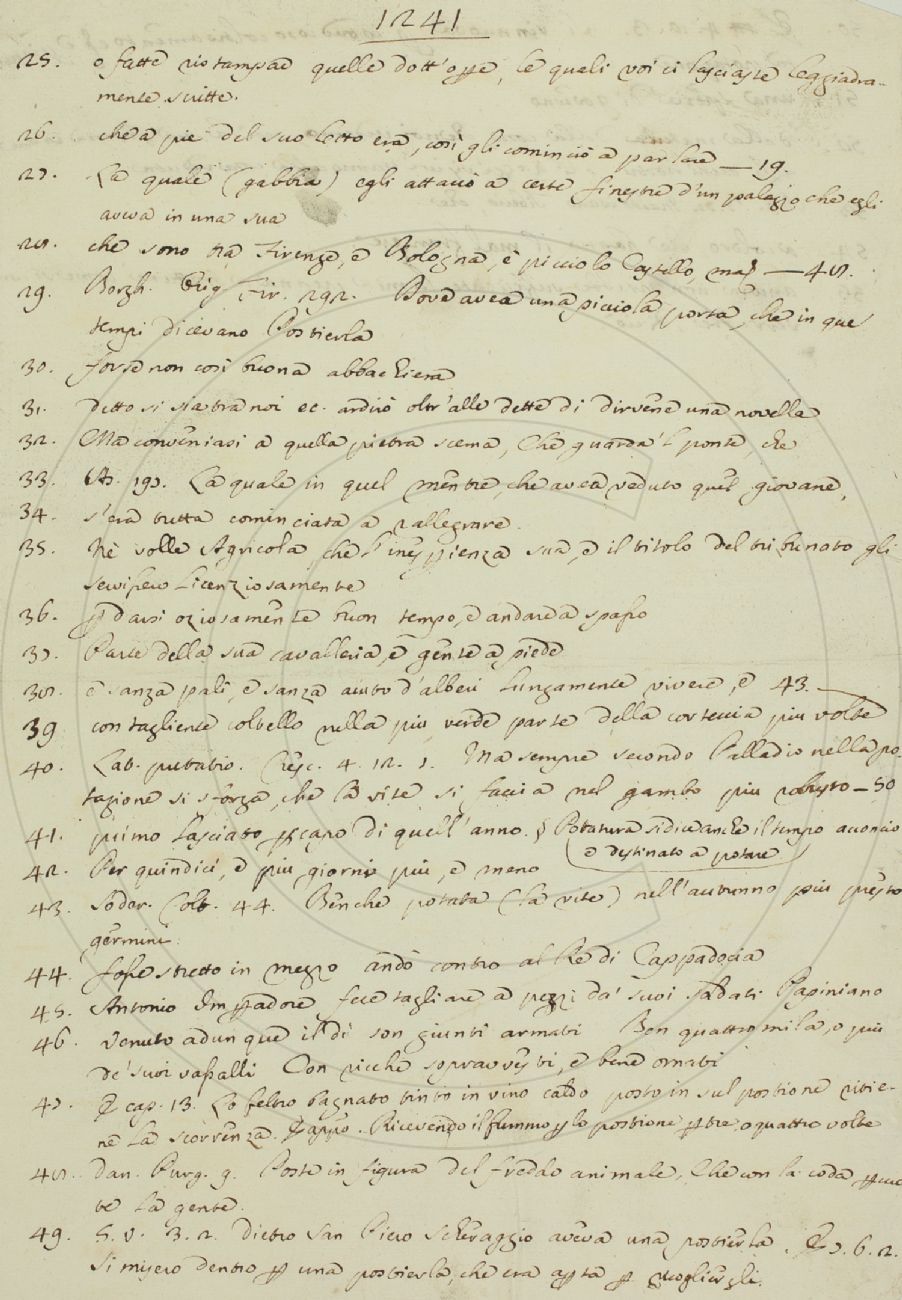 1241
25. o fatte ristampare quelle dott'opre, le quali voi ci lasciaste leggiadra-
mente scritte.
26. che a piè del suo letto era, così gli cominciò a parlare — 19.
27. La quale (gabbia) egli attaccò a certe finestre d'un palagio che egli
aveva in una sua
28. che sono tra Firenze, e Bologna, è piccolo Castello, ma — 48.
29. Borgh. Orig. Fir. 292. Dove avea una picciola porta, che in que'
tempi dicevano Postierla
30. forse non così buona abbachiera
31. detto si sia tra noi ec. ardirò oltr'alle dette di dirvene una novella
32. Ma conveniasi a quella pietra scema, Che guarda 'l ponte, che
33. 197. La quale in quel mentre, che avea veduto quel giovane,
34. s'era tutta cominciata a rallegrare.
35. Nè volle Agricola che l'inesperienza sua, e il titolo del tribunato gli
servissero licenziosamente
36. p darsi oziosamente buon tempo, e andare a spasso
37. Parte della sua cavalleria, e gente a piede
38. e sanza pali, e sanza aiuto d'alberi lungamente vivere, e 43.—
39 con tagliente coltello nella più verde parte della corteccia più volte
40. Lat. putatio. Cresc. 4. 12. 1. Ma sempre secondo Palladio nella po-
tazione si sforza, che la vite si faccia nel gambo più robusto — 50
41. primo lasciato p capo di quell'anno. § Potatura si dice anche il tempo acconcio
e destinato a potare
42. Per quindici, e più giorni più, e meno
43. Soder. Colt. 44. Benchè potata (la vite) nell'autunno più presto
germini.
44. fosse stretto in mezzo andò contro al Re di Cappadocia
45. Antonio Impadore fece tagliare a pezzi da' suoi soldati Papiniano
46. Venuto adunque il dì son giunti armati Ben quattro mila, o più
de' suoi vassalli Con ricche sopravvesti, e bene ornati
47. E cap. 13. Lo feltro bagnato tinto in vino caldo posto in sul postione ritie-
ne la scorrenza. E appo. Ricevendo il fummo p lo postione p tre, o quattro volte
48. Dan. Purg. 9. Poste in figura del freddo animale, Che con la coda pcuo
te la gente.
49. G. V. 3. 2. Dietro San Piero Scheraggio aveva una postierla. E 7. 6. 2.
Si misero dentro p una postierla, che era apta p accogliergli.